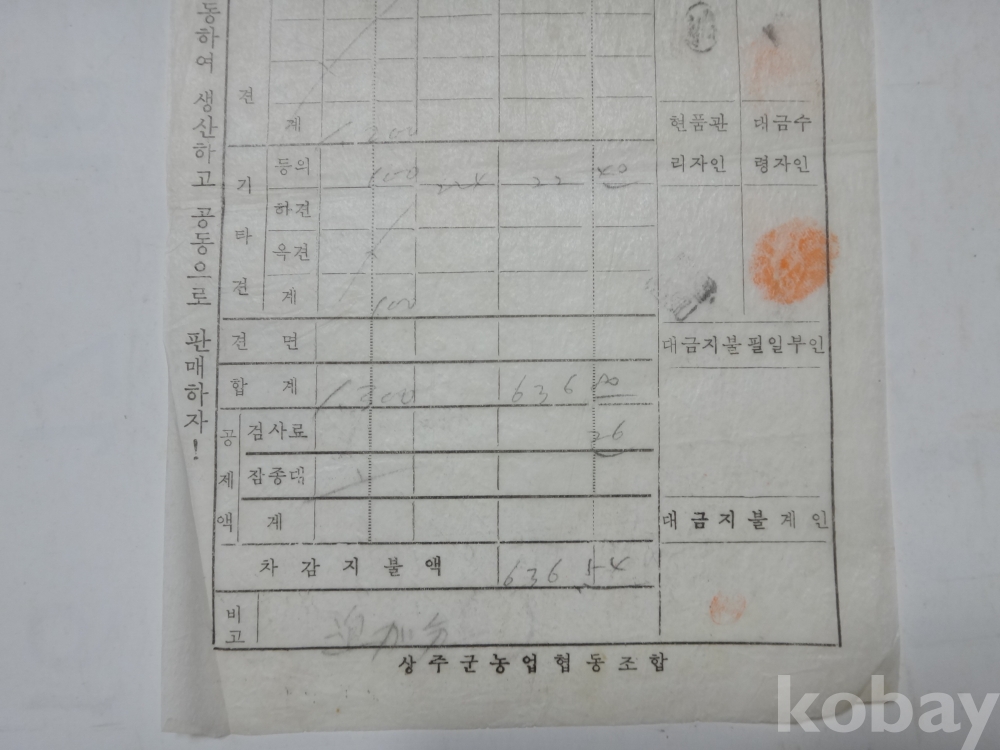 동하여 생산하고 공동으로 판매하자!
견
계 1 300
현품관리자인
대금수령자인
기타견
등외 100 224 22 40
하견
옥견
계 100
견면
대금지불필일부인
합계 1 300 636 80
공제액
검사료 26
잠종대
계
대금지불계인
차감지불액 636 54
비고
상주군농업협동조합
kobay